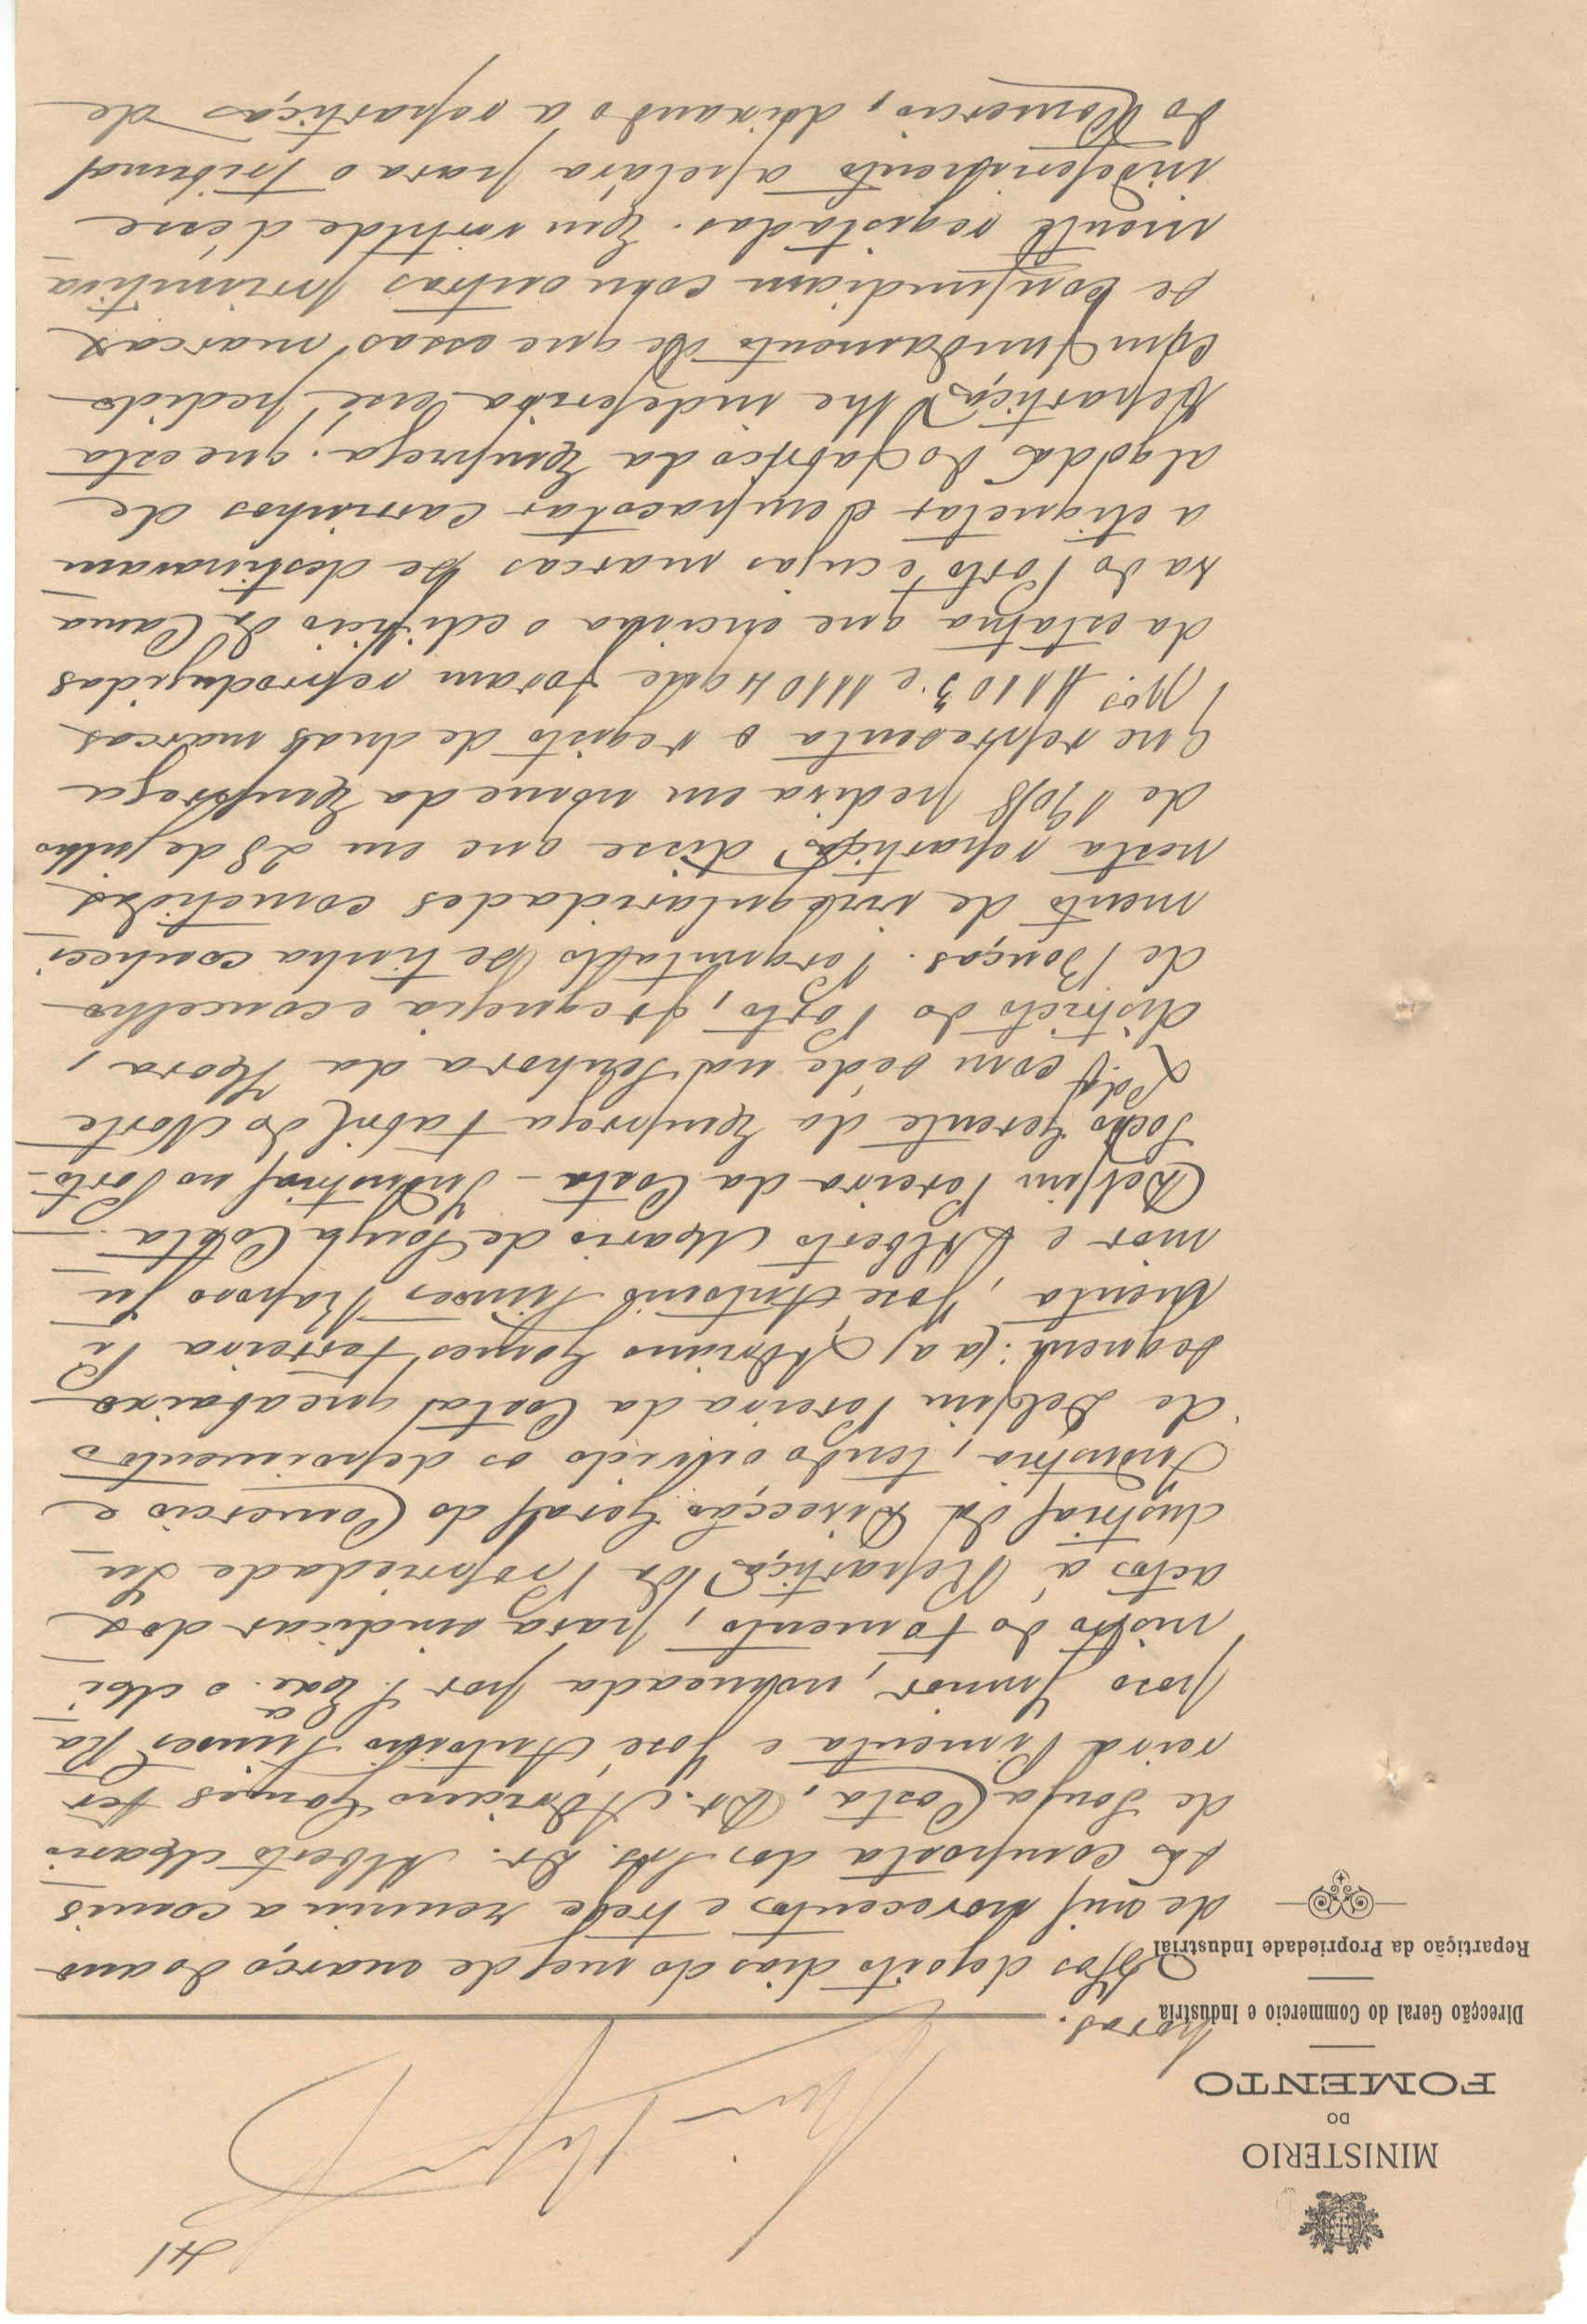 41
MINISTERIO
DO
FOMENTO
Direcção Geral do Commercio e Industria
Repartição da Propriedade Industrial
horas.
Aos dezoito dias do mez de março do ano
de mil novecentos e treze reuniu a comis
são composta dos Srs. Dr. Alberto Mario
de Souza Costa, Dr. Adriano Gomes Fer
reira Pimenta e José Antonio Simões Ra
poso Junior, nomeada por S. Exa. o Mi
nistro do Fomento, para sindicar dos
actos á Repartição da Propriedade In
dustrial da Direcção Geral do Comercio e
Industria, tendo ouvido os depoimentos
de Delfim Pereira da Costa que abaixo
seguem: (a a) Adriano Gomes Ferreira Pi
menta, José Antonio Simões Raposo Ju
nior e Alberto Mario de Souza Costa.
Delfim Pereira da Costa - Industrial no Porto -
Socio Gerente da Empreza Fabril do Norte
Lda. com séde na Senhora da Hora,
districto do Porto, freguesia e concelho
de Bouças. Perguntado se tinha conheci
mento de irregularidades cometidas
nesta repartição disse que em 28 de julho
de 1908 pedira em nome da Empreza
que representa o registo de duas marcas
Nos. 11103 e 11104 que foram reproduzidas
da estatua que encima o edificio da Cama
ra do Porto e cujas marcas se destinavam
a etiquetar e empacotar carrinhos de
algodão do fabrico da Empreza; que esta
Repartição lhe indeferira esse pedido
com fundamento de que essas marcas
se confundiam com outras primitiva
mente registadas. Em virtude désse
indeferimento apelára para o tribunal
do Comercio, deixando a repartição de